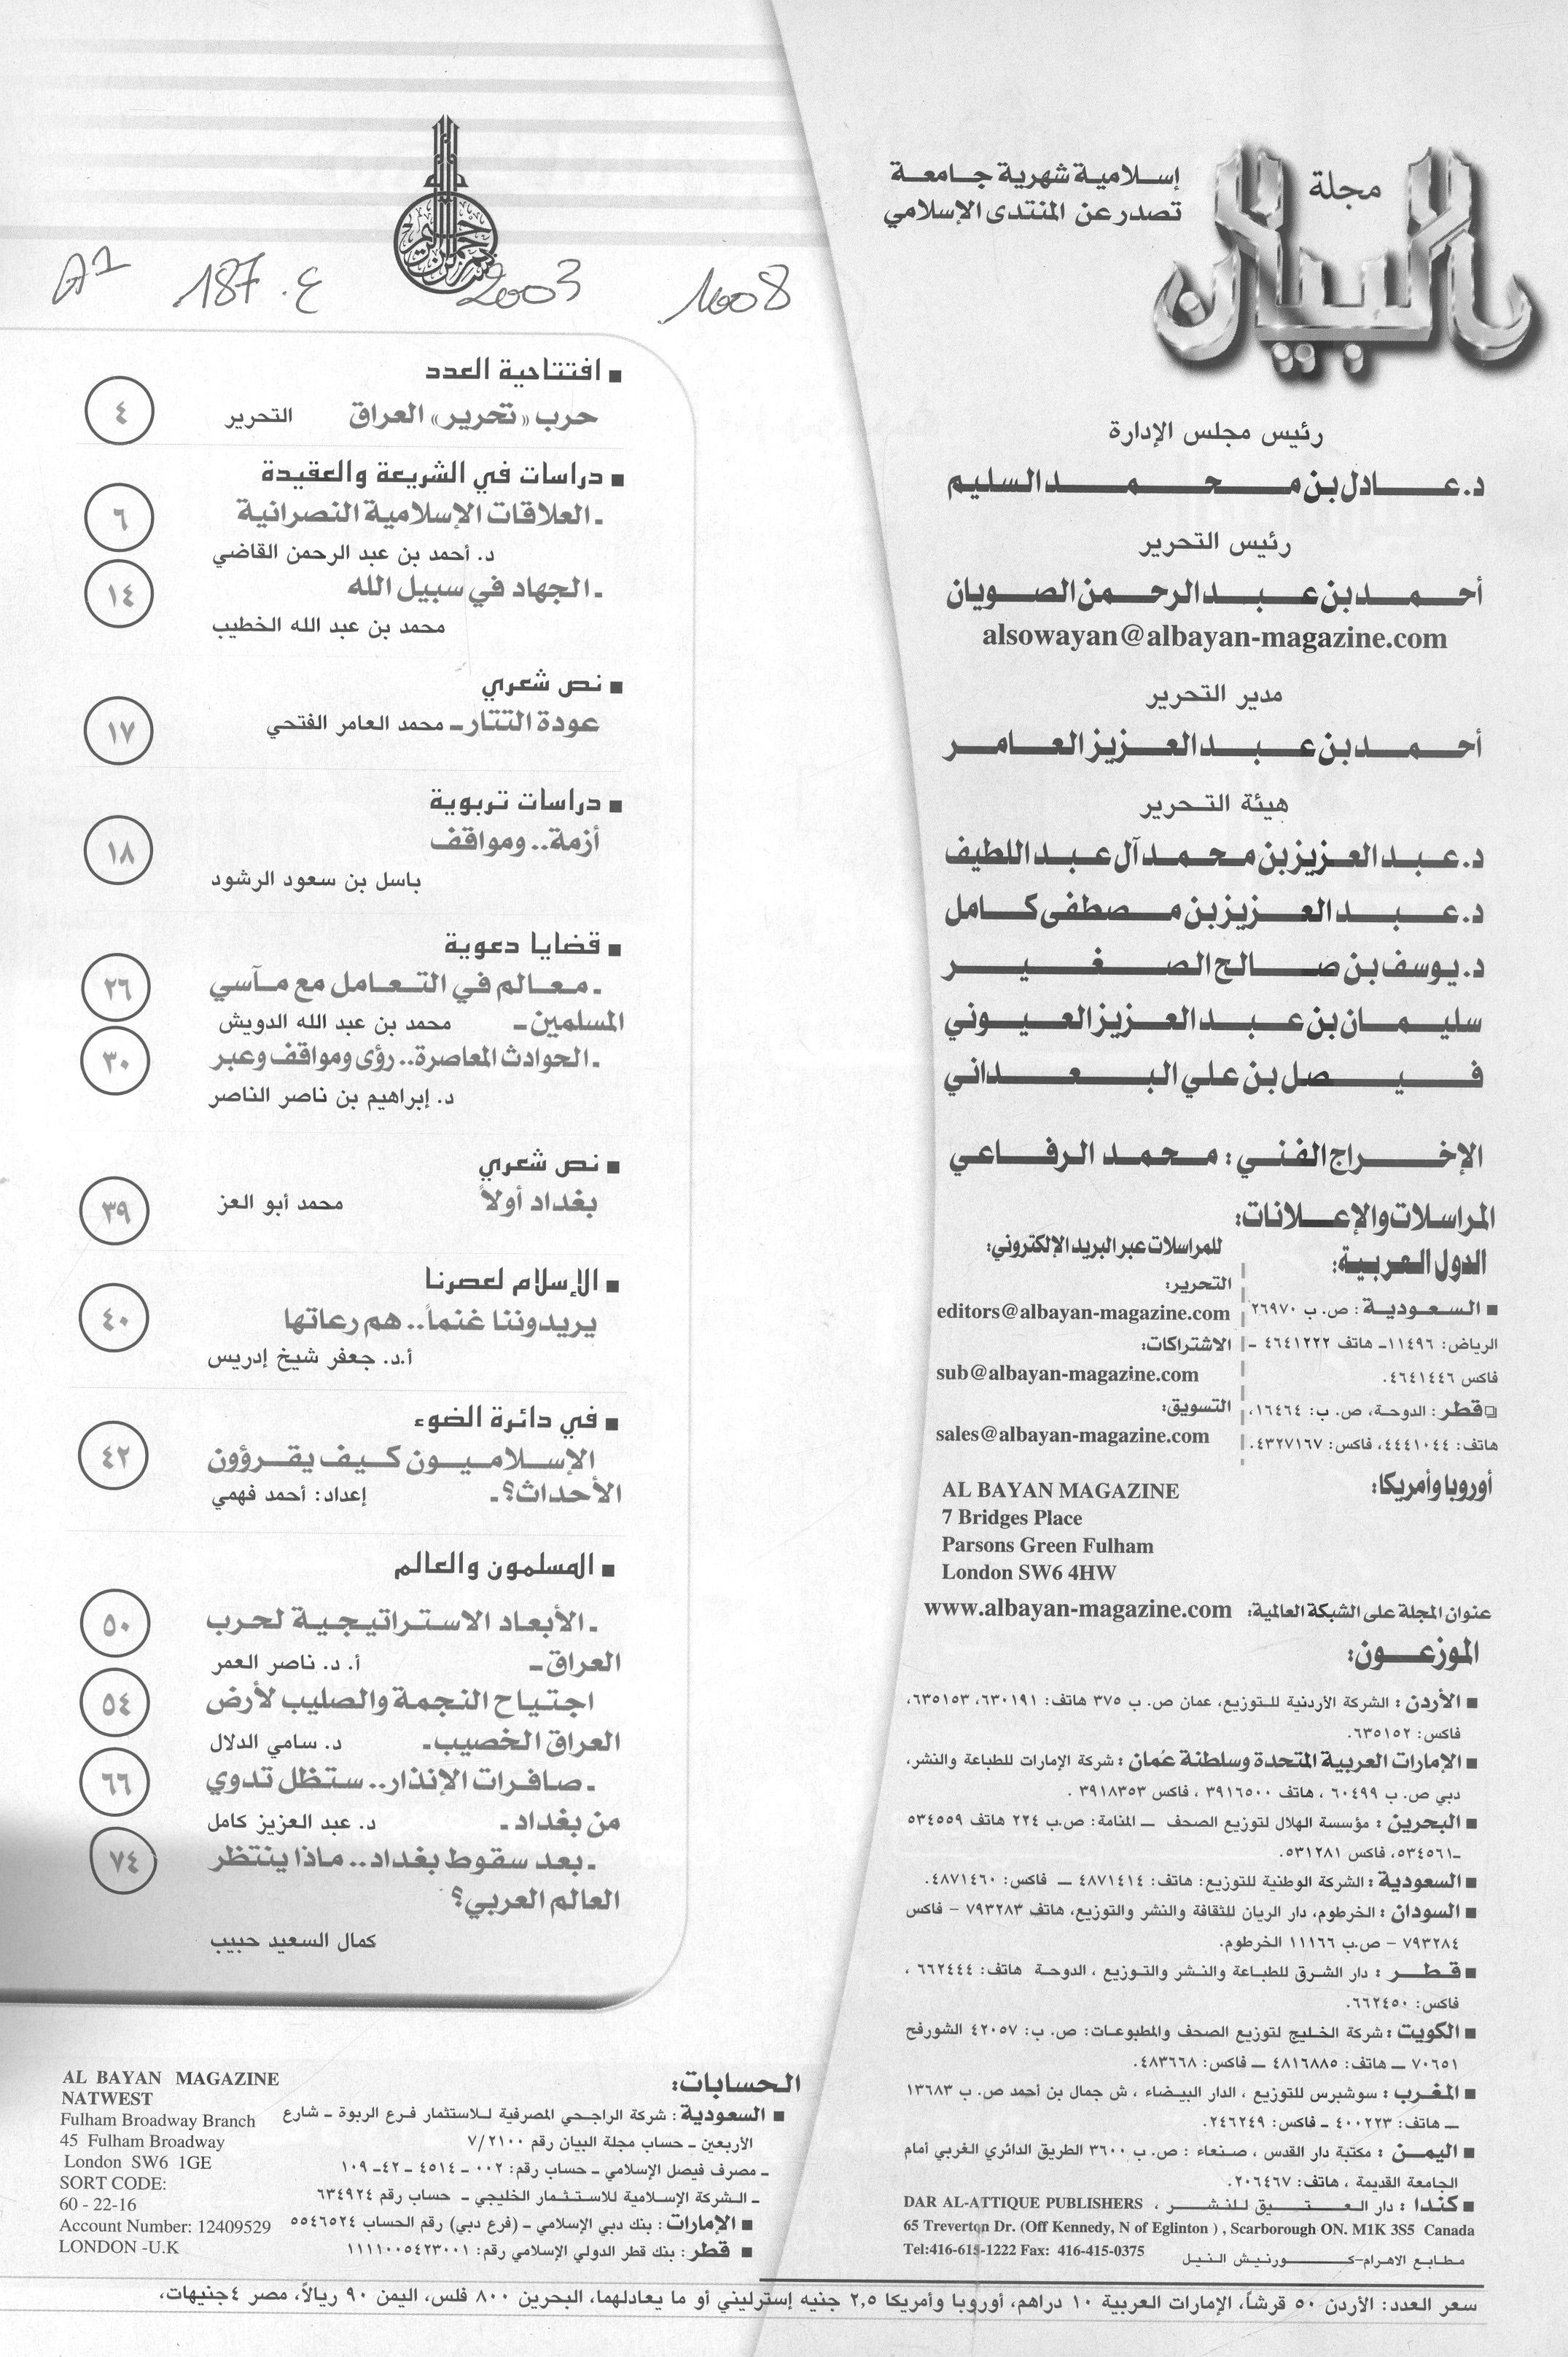 مجلة
البيان
إسلامية شهرية جامعة
تصدر عن المنتدى الإسلامي
رئيس مجلس الإدارة
د. عادل بن محمد السليم
رئيس التحرير
أحمد بن عبد الرحمن الصويان
alsowayan@albayan-magazine.com
مدير التحرير
أحمد بن عبد العزيز العامر
هيئة التحرير
د. عبد العزيز بن محمد آل عبد اللطيف
د. عبد العزيز بن مصطفى كامل
د. يوسف بن صالح الصغير
سليمان بن عبد العزيز العيوني
فيصل بن علي البعداني
الإخراج الفني: محمد الرفاعي
المراسلات والإعلانات:
الدول العربية:
■ السعودية: ص. ب ٢٦٩٧٠
الرياض: ١١٤٩٦ـ هاتف ٤٦٤١٢٢٢ ـ
فاكس ٤٦٤١٤٤٦.
قطر: الدوحة، ص. ب: ١٦٤٦٤،
هاتف: ٤٤٤١٠٤٤، فاكس: ٤٣٢٧١٦٧.
للمراسلات عبر البريد الإلكتروني:
التحرير:
editors@albayan-magazine.com
الاشتراكات:
sub@albayan-magazine.com
التسويق:
sales@albayan-magazine.com
أوروبا وأمريكا:
AL BAYAN MAGAZINE
7 Bridges Place
Parsons Green Fulham
London SW6 4HW
عنوان المجلة على الشبكة العالمية: www.albayan-magazine.com
الموزعون:
■ الأردن: الشركة الأردنية للتوزيع، عمان ص. ب ٣٧٥ هاتف: ٦٣٠١٩١، ٦٣٥١٥٣،
فاكس: ٦٣٥١٥٢.
■ الإمارات العربية المتحدة وسلطنة عُمان: شركة الإمارات للطباعة والنشر،
دبي ص. ب ٦٠٤٩٩ ، هاتف ٣٩١٦٥٠٠ ، فاكس ٣٩١٨٣٥٣ .
■ البحرين: مؤسسة الهلال لتوزيع الصحف ــ المنامة: ص.ب ٢٢٤ هاتف ٥٣٤٥٥٩
ـ٥٣٤٥٦١، فاكس ٥٣١٢٨١.
■ السعودية: الشركة الوطنية للتوزيع: هاتف: ٤٨٧١٤١٤ ــ فاكس: ٤٨٧١٤٦٠.
■ السودان: الخرطوم، دار الريان للثقافة والنشر والتوزيع، هاتف ٧٩٣٢٨٣ – فاكس
٧٩٣٢٨٤ – ص.ب ١١١٦٦ الخرطوم.
■ قطر: دار الشرق للطباعة والنشر والتوزيع ، الدوحة هاتف: ٦٦٢٤٤٤ ،
فاكس: ٦٦٢٤٥٠.
■ الكويت: شركة الخليج لتوزيع الصحف والمطبوعات: ص. ب: ٤٢٠٥٧ الشورفح
٧٠٦٥١ ــ هاتف: ٤٨١٦٨٨٥ ــ فاكس: ٤٨٣٦٦٨.
■ المغرب: سوشبرس للتوزيع ، الدار البيضاء ، ش جمال بن أحمد ص. ب ١٣٦٨٣
ــ هاتف: ٤٠٠٢٢٣ ــ فاكس: ٢٤٦٢٤٩.
■ اليمن: مكتبة دار القدس ، صنعاء : ص. ب ٣٦٠٠ الطريق الدائري الغربي أمام
الجامعة القديمة ، هاتف: ٢٠٦٤٦٧.
■ كندا: دار العتيق للنشر ، DAR AL-ATTIQUE PUBLISHERS
65 Treverton Dr. (Off Kennedy, N of Eglinton ) , Scarborough ON. M1K 3S5 Canada
Tel:416-615-1222 Fax: 416-415-0375
مطابع الاهرام-كورنيش النيل
A1 187 .ع 2003 1008
■ افتتاحية العدد
حرب «تحرير» العراق التحرير ٤
■ دراسات في الشريعة والعقيدة
ـ العلاقات الإسلامية النصرانية ٦
د. أحمد بن عبد الرحمن القاضي
ـ الجهاد في سبيل الله ١٤
محمد بن عبد الله الخطيب
■ نص شعري
عودة التتار ـ محمد العامر الفتحي ١٧
■ دراسات تربوية
أزمة.. ومواقف ١٨
باسل بن سعود الرشود
■ قضايا دعوية
ـ معالم في التعامل مع مآسي ٢٦
المسلمين ـ محمد بن عبد الله الدويش
ـ الحوادث المعاصرة.. رؤى ومواقف وعبر ٣٠
د. إبراهيم بن ناصر الناصر
■ نص شعري
بغداد أولاً محمد أبو العز ٣٩
■ الإسلام لعصرنا
يريدوننا غنماً.. هم رعاتها ٤٠
أ.د. جعفر شيخ إدريس
■ في دائرة الضوء
الإسلاميون كيف يقرؤون ٤٢
الأحداث؟ـ إعداد: أحمد فهمي
■ المسلمون والعالم
ـ الأبعاد الاستراتيجية لحرب ٥٠
العراق ـ أ. د. ناصر العمر
اجتياح النجمة والصليب لأرض ٥٤
العراق الخصيب ـ د. سامي الدلال
ـ صافرات الإنذار.. ستظل تدوي ٦٦
من بغداد ـ د. عبد العزيز كامل
ـ بعد سقوط بغداد.. ماذا ينتظر ٧٤
العالم العربي؟
كمال السعيد حبيب
الحسابات:
■ السعودية: شركة الراجحي المصرفية للاستثمار فرع الربوة ـ شارع
الأربعين ـ حساب مجلة البيان رقم ٧/٢١٠٠
ـ مصرف فيصل الإسلامي ـ حساب رقم: ٠٠٢ ـ ٤٥١٤ ـ ٤٢ـ ١٠٩
ـ الشركة الإسلامية للاستثمار الخليجي ـ حساب رقم ٦٣٤٩٢٤
■ الإمارات: بنك دبي الإسلامي ـ (فرع دبي) رقم الحساب ٥٥٤٦٥٢٤
■ قطر: بنك قطر الدولي الإسلامي رقم: ١١١١٠٠٥٤٢٣٠٠١
AL BAYAN MAGAZINE
NATWEST
Fulham Broadway Branch
45 Fulham Broadway
London SW6 1GE
SORT CODE:
60 - 22-16
Account Number: 12409529
LONDON -U.K
سعر العدد: الأردن ٥٠ قرشاً، الإمارات العربية ١٠ دراهم، أوروبا وأمريكا ٢,٥ جنيه إسترليني أو ما يعادلهما، البحرين ٨٠٠ فلس، اليمن ٩٠ ريالاً، مصر ٤جنيهات،